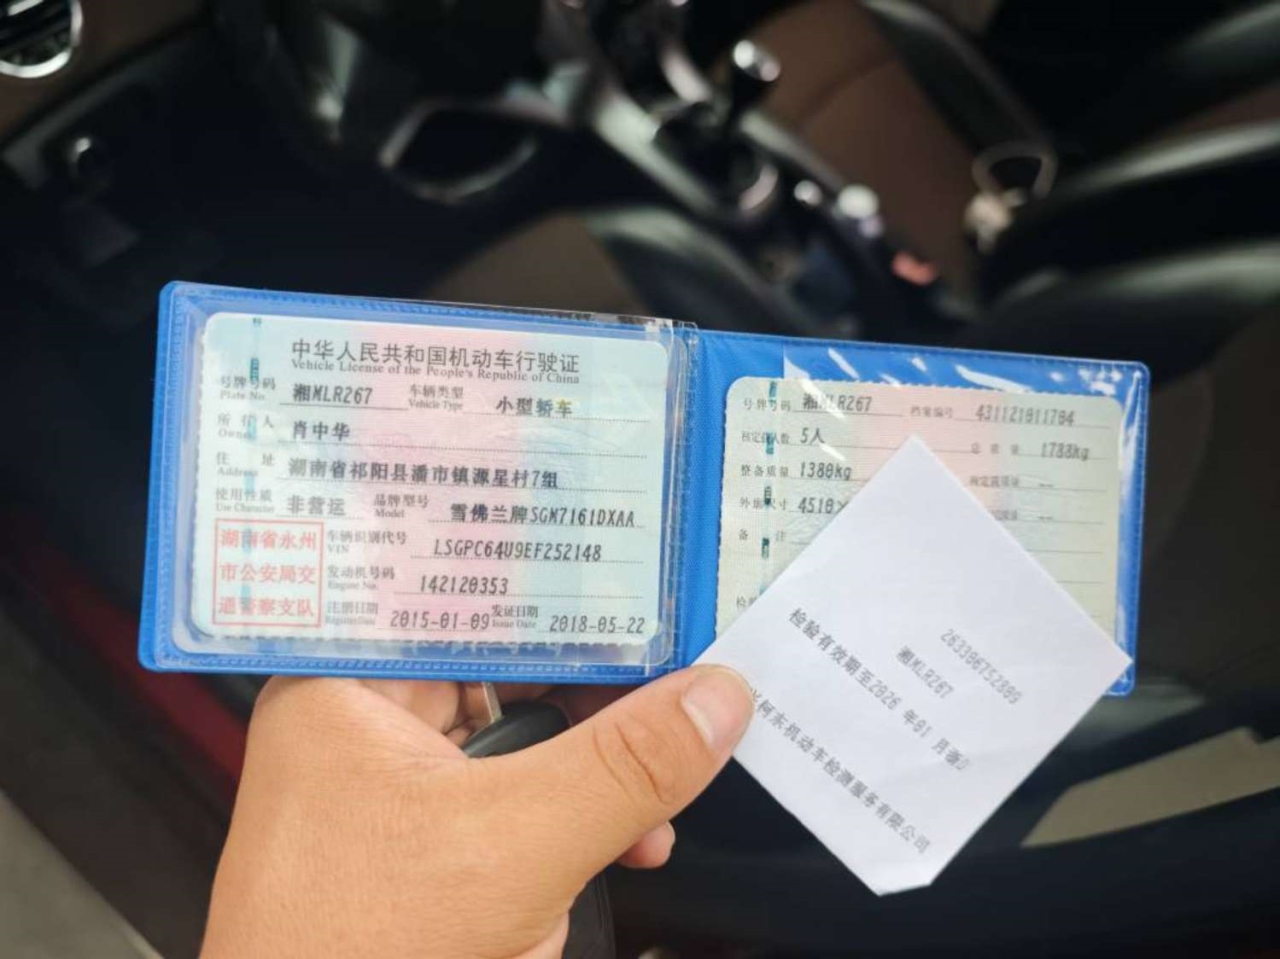 中华人民共和国机动车行驶证
Vehicle License of the People's Republic of China
号牌号码 湘MLR267 车辆类型 小型轿车
Plate No. Vehicle Type
所有人 肖中华
Owner
住址 湖南省祁阳县潘市镇源星村7组
Address
使用性质 非营运 品牌型号 雪佛兰牌SGM7161DXAA
Use Character Model
湖南省永州
市公安局交
通警察支队
车辆识别代号 LSGPC64U9EF252148
VIN
发动机号码 142120353
Engine No.
注册日期 2015-01-09 发证日期 2018-05-22
Register Date Issue Date
号牌号码 湘MLR267 档案编号 431121011704
核定载人数 5人 总质量 1788kg
整备质量 1380kg
外廓尺寸 4518
备注
湘MLR267
检验有效期至2026年01月
柯东机动车检测服务有限公司